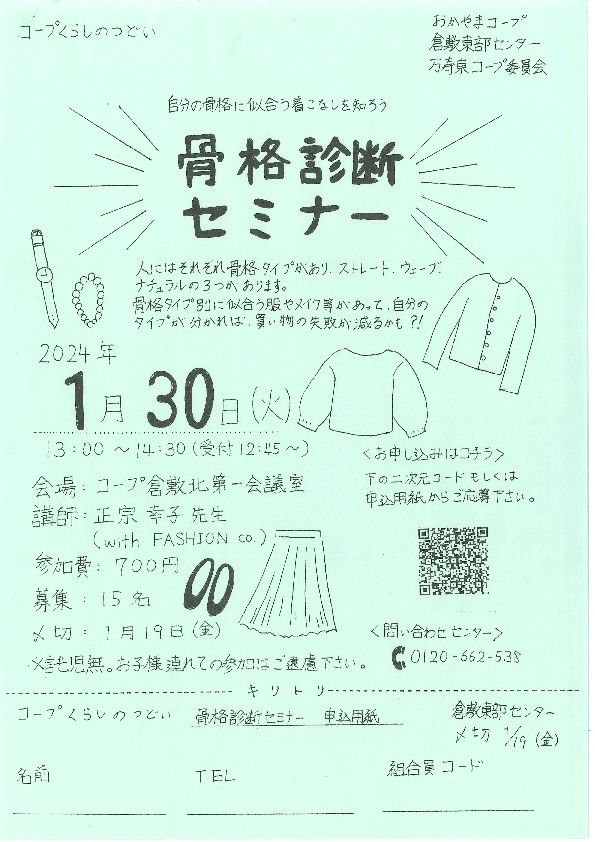 コープくらしのつどい
おかやまコープ
倉敷東部センター
万寿東コープ委員会
自分の骨格に似合う着こなしを知ろう
骨格診断
セミナー
人にはそれぞれ骨格タイプがあり、ストレート、ウェーブ、
ナチュラルの3つがあります。
骨格タイプ別に似合う服やメイク等があって、自分の
タイプが分かれば、買い物の失敗が減るかも?!
2024年
1月30日(火)
13:00 ~ 14:30 (受付12:45~)
会場: コープ倉敷北第一会議室
講師: 正宗 幸子 先生
(with FASHION co.)
参加費: 700円
募集: 15名
〆切: 1月19日(金)
※託児無。お子様連れての参加はご遠慮下さい。
<お申し込みはコチラ>
下の二次元コードもしくは
申込用紙からご応募下さい。
<問い合わせセンター>
0120-662-538
キリトリ
コープくらしのつどい 骨格診断セミナー 申込用紙
倉敷東部センター
〆切 1/19 (金)
名前
TEL
組合員コード